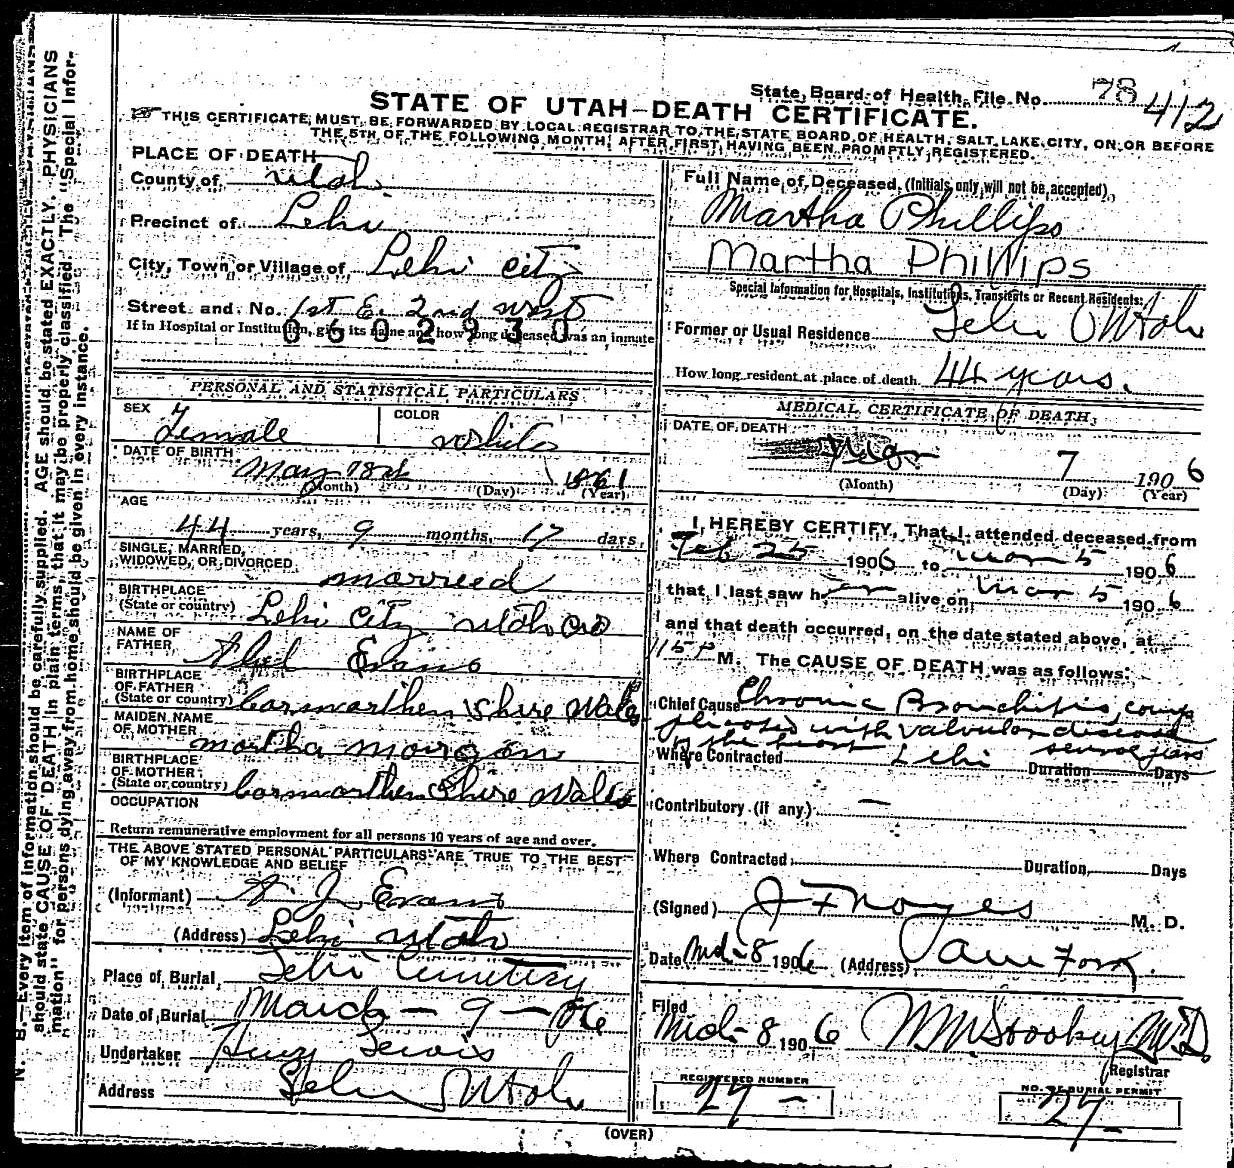 State Board of Health File No. 78 412
STATE OF UTAH—DEATH CERTIFICATE.
THIS CERTIFICATE MUST BE FORWARDED BY LOCAL REGISTRAR TO THE STATE BOARD OF HEALTH, SALT LAKE CITY, ON OR BEFORE
THE 5TH OF THE FOLLOWING MONTH, AFTER FIRST HAVING BEEN PROMPTLY REGISTERED.
PLACE OF DEATH
County of Utah.
Precinct of Lehi
City, Town or Village of Lehi City
Street and No. 1st E. 2nd West
If in Hospital or Institution, give its name and how long deceased was an inmate
0602930
PERSONAL AND STATISTICAL PARTICULARS
SEX Female
COLOR White
DATE OF BIRTH May 1861
(Month) (Day) (Year)
AGE
44 years, 9 months, 17 days.
SINGLE, MARRIED, WIDOWED, OR DIVORCED married
BIRTHPLACE (State or country) Lehi City Utah Co
NAME OF FATHER Abel Evans
BIRTHPLACE OF FATHER (State or country) Carmarthen Shire Wales
MAIDEN NAME OF MOTHER Martha Morgan
BIRTHPLACE OF MOTHER (State or country) Carmarthen Shire Wales
OCCUPATION
Return remunerative employment for all persons 10 years of age and over.
THE ABOVE STATED PERSONAL PARTICULARS ARE TRUE TO THE BEST
OF MY KNOWLEDGE AND BELIEF
(Informant) A. J. Evans
(Address) Lehi Utah
Place of Burial Lehi Cemetery
Date of Burial March — 9 — 06
Undertaker Henry Lewis
Address Lehi Utah
Full Name of Deceased (Initials only will not be accepted)
Martha Phillips
Martha Phillips
Special Information for Hospitals, Institutions, Transients or Recent Residents:
Former or Usual Residence Lehi Utah
How long resident at place of death 44 years.
MEDICAL CERTIFICATE OF DEATH
DATE OF DEATH 7 1906
(Month) (Day) (Year)
I, HEREBY CERTIFY, That I attended deceased from
Feb 25 1906 to Mar 5 1906
that I last saw her alive on Mar 5 1906
and that death occurred, on the date stated above, at
M. The CAUSE OF DEATH was as follows:
Chief Cause Chronic Bronchitis, comp
plicated with valvular disease
of the heart several years
Where Contracted Lehi Duration Days
Contributory (if any) —
Where Contracted Duration Days
(Signed) J F Noyes M. D.
Date Mch-8 1906 (Address) Am Fork.
Filed
Mch-8 1906 WM Stookey M.D.
Registrar
REGISTERED NUMBER
27 —
NO. OF BURIAL PERMIT
27 -
(OVER)
N. B.—Every item of information should be carefully supplied. AGE should be stated EXACTLY. PHYSICIANS
should state CAUSE OF DEATH in plain terms, that it may be properly classified. The "Special Infor-
mation" for persons dying away from home should be given in every instance.